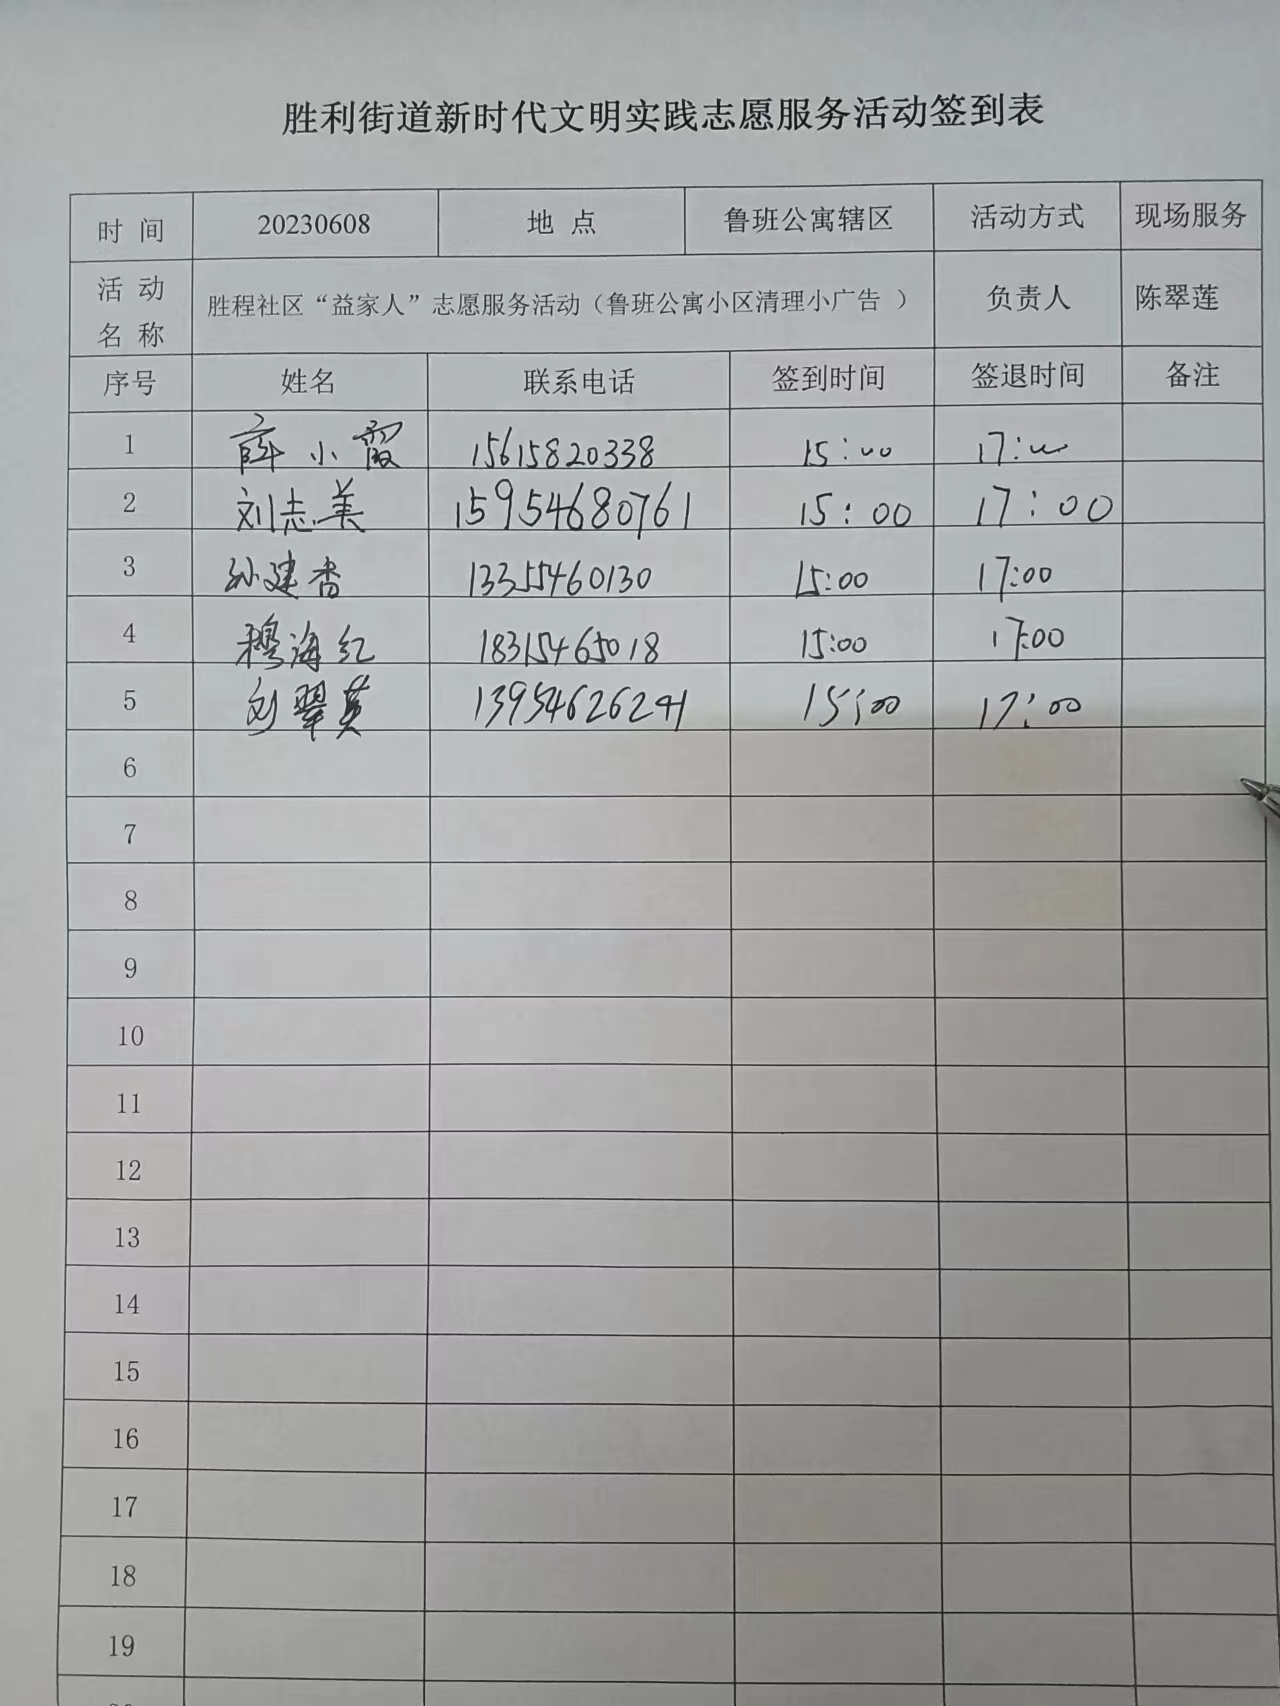 胜利街道新时代文明实践志愿服务活动签到表
时 间 20230608 地 点 鲁班公寓辖区 活动方式 现场服务
活 动 名 称 胜程社区“益家人”志愿服务活动（鲁班公寓小区清理小广告 ） 负责人 陈翠莲
序号 姓名 联系电话 签到时间 签退时间 备注
1 薛小霞 15615820338 15:00 17:00
2 刘志美 15954680761 15:00 17:00
3 孙建香 13355460130 15:00 17:00
4 穆海红 18315465018 15:00 17:00
5 刘翠英 13954626241 15:00 17:00
6
7
8
9
10
11
12
13
14
15
16
17
18
19